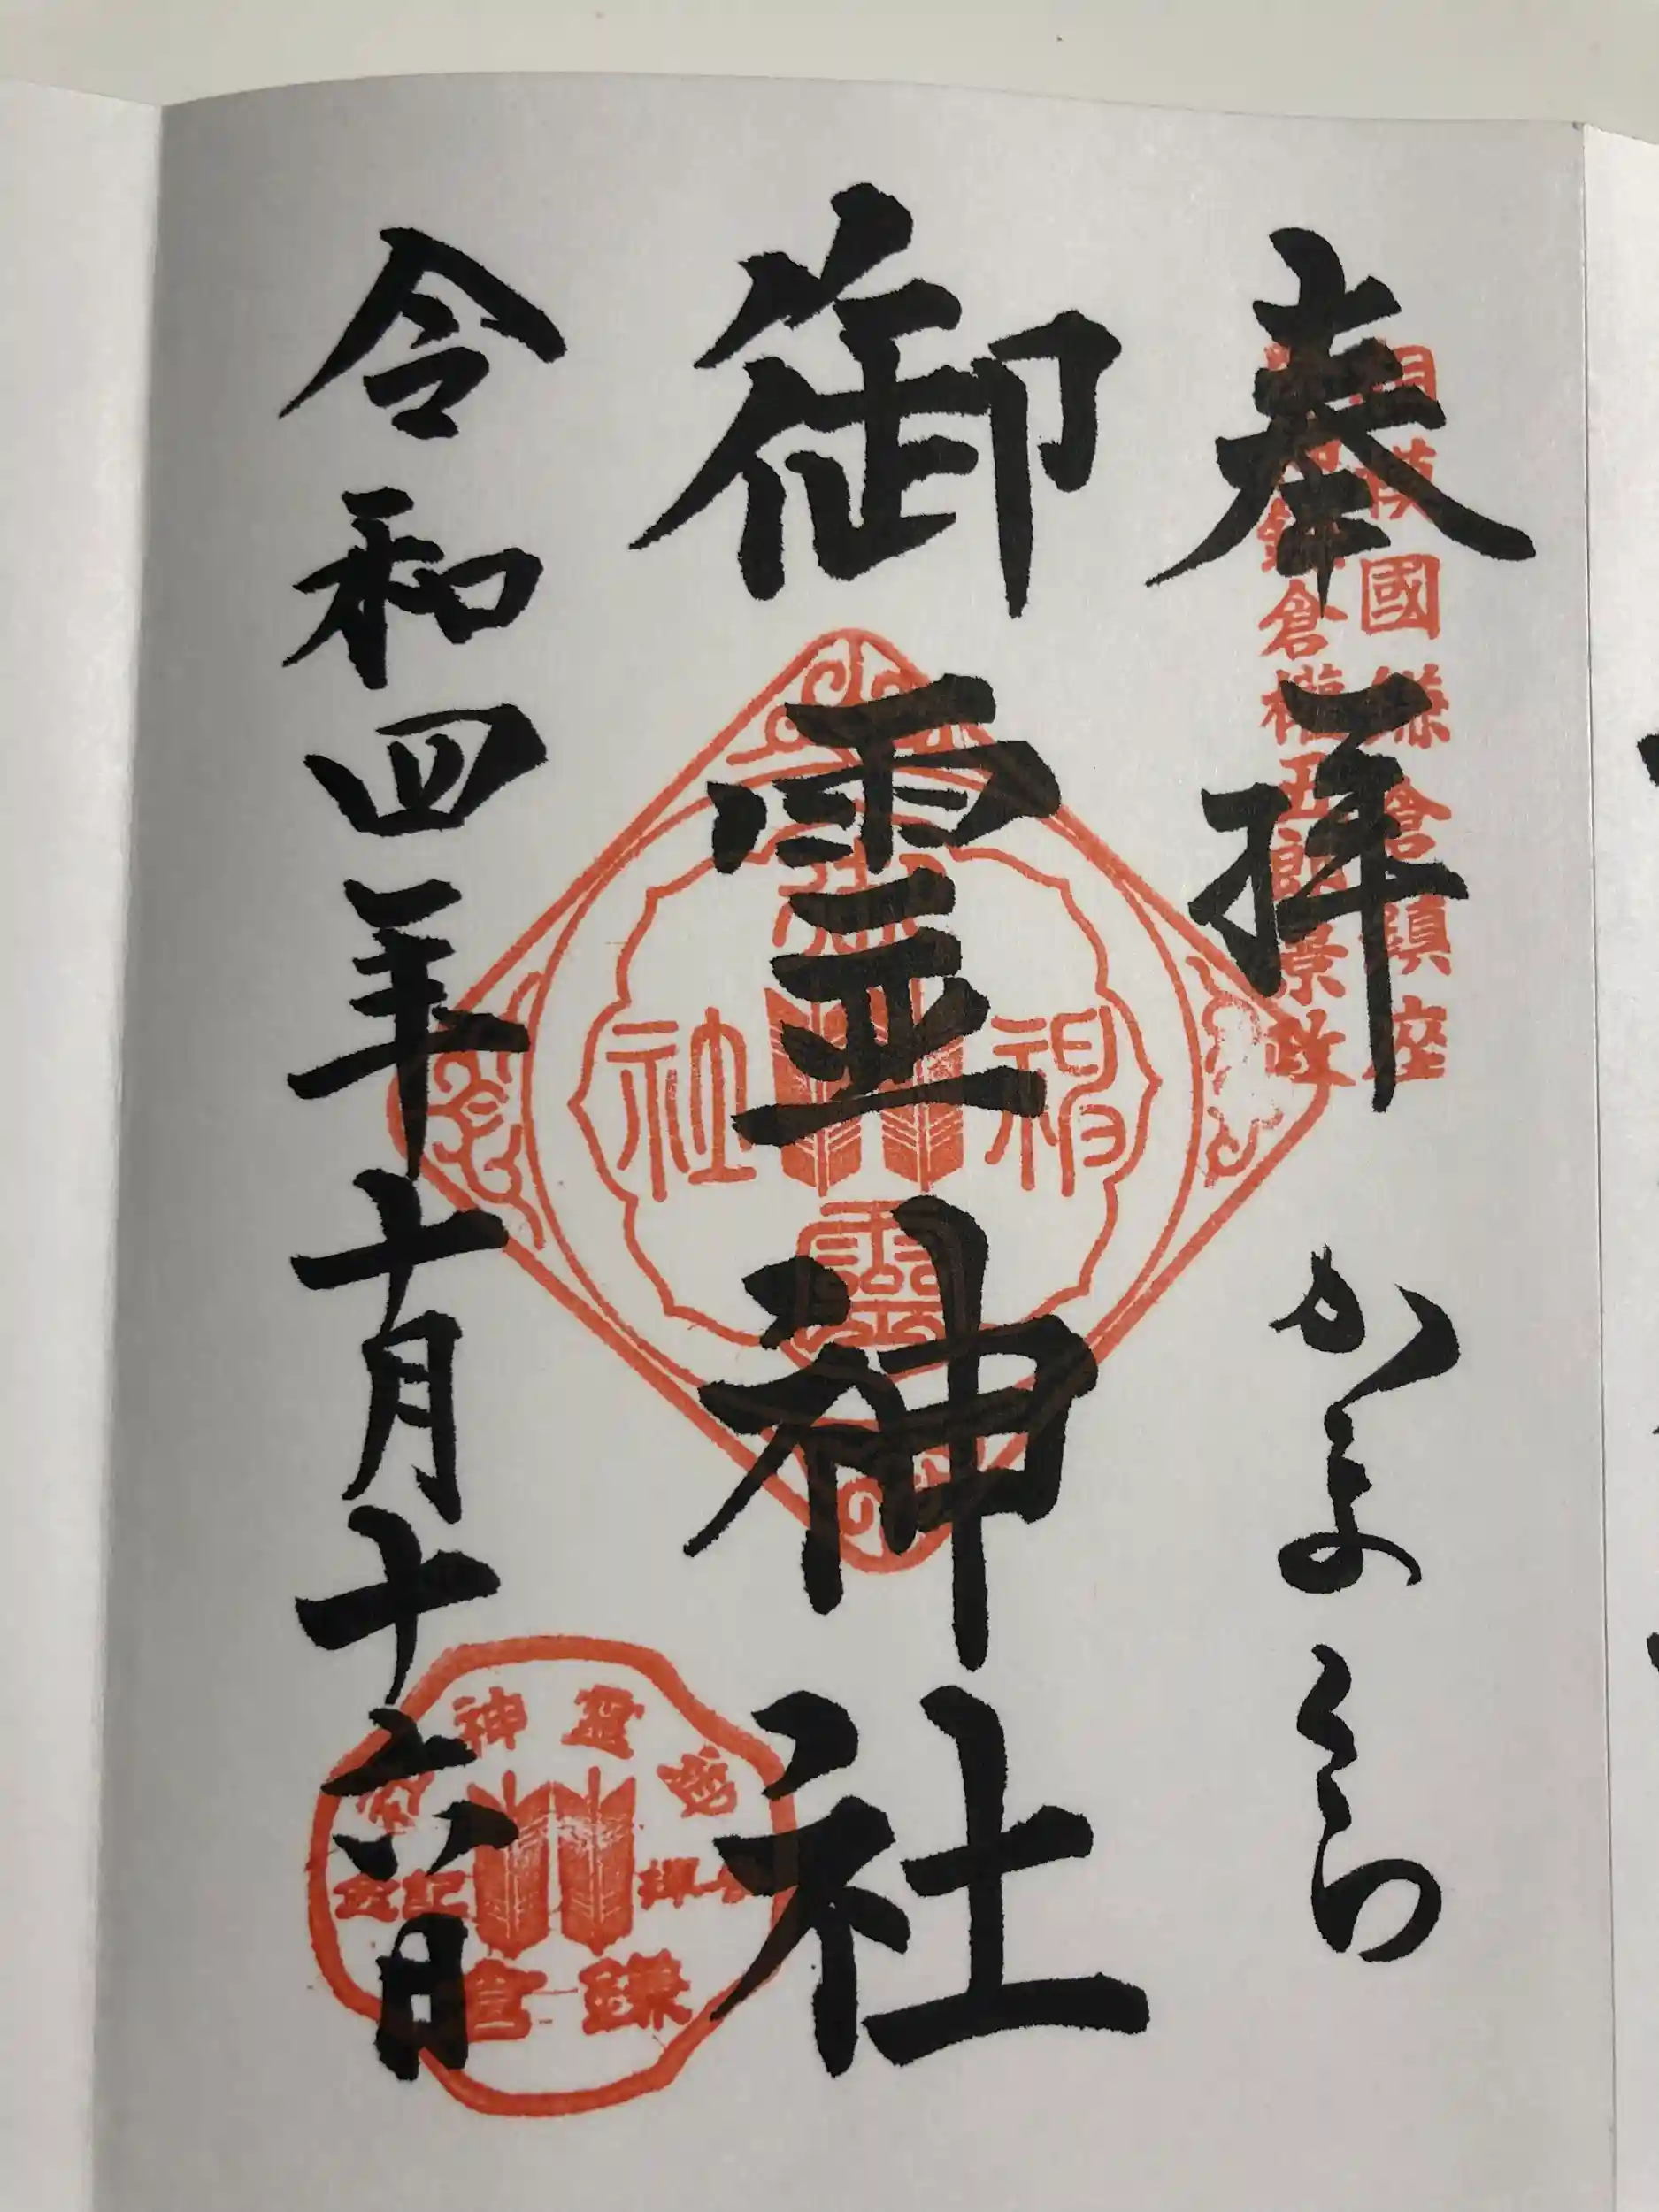 奉拝 かまくら
相模國鎌倉鎮座
鎌倉権五郎景政
御霊神社
御霊神社
令和四年十月十六日
御霊神社
参拝記念
鎌倉